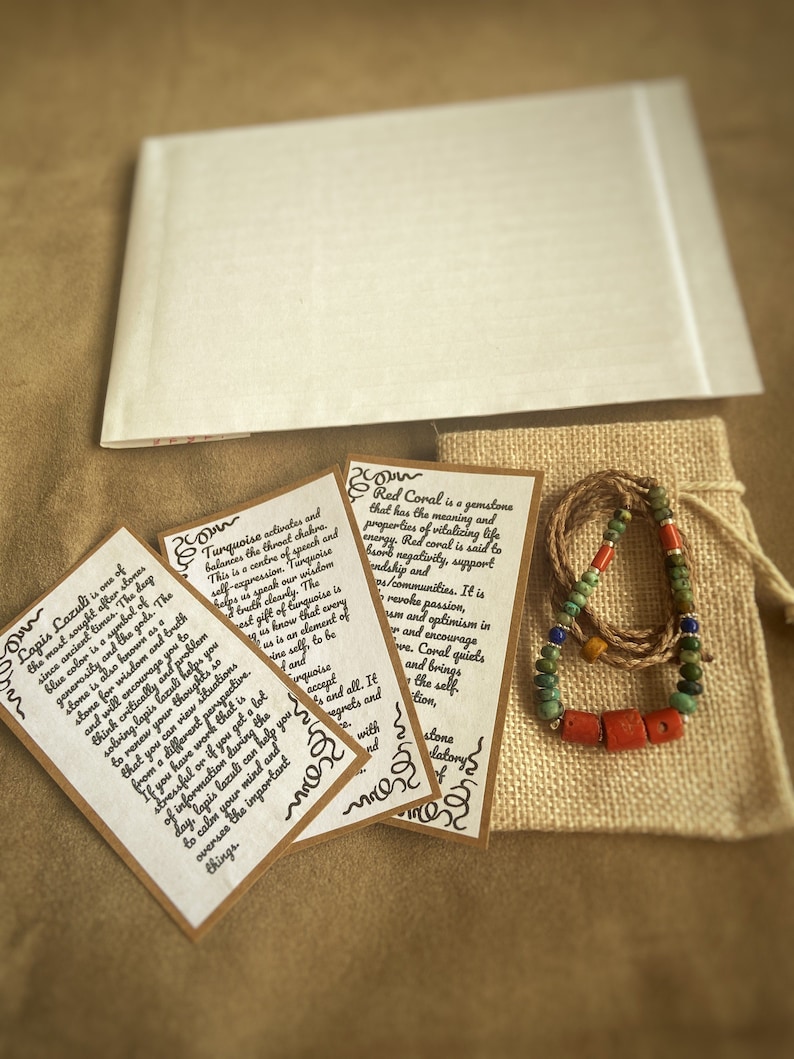 Lapis Lazuli is one of
the most sought after stones
since ancient times. The deep
blue color is a symbol of
generosity and the gods. The
stone is also known as a
stone for wisdom and truth
and will encourage you to
think critically and problem
solving. lapis lazuli helps you
to renew your thoughts so
that you can view situations
from a different perspective.
If you have work that is
stressful or if you get a lot
of information during the
day, lapis lazuli can help you
to calm your mind and
oversee the important
things.
Turquoise activates and
balances the throat chakra.
This is a centre of speech and
self-expression. Turquoise
helps us speak our wisdom
and truth clearly. The
est gift of turquoise is
us know that every
us is an element of
ine self, to be
d and
rquoise
accept
ts and all. It
egrets and
e.
with
nd
Red Coral is a gemstone
that has the meaning and
properties of vitalizing life
energy. Red coral is said to
absorb negativity, support
endship and
ps/communities. It is
revoke passion,
asm and optimism in
er and encourage
ove. Coral quiets
and brings
n the self.
ition,
stone
ulatory
of